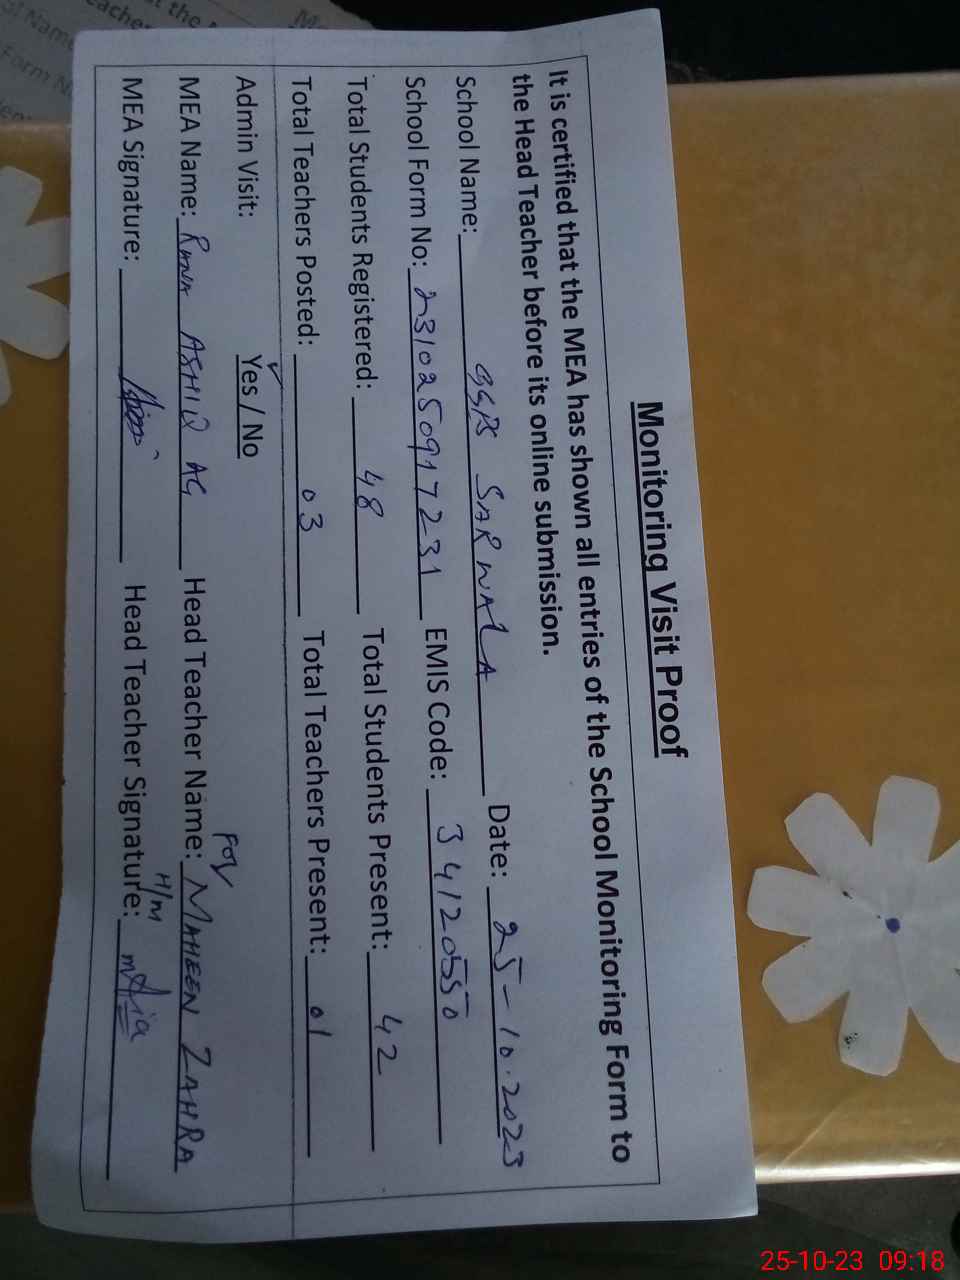 Monitoring Visit Proof
It is certified that the MEA has shown all entries of the School Monitoring Form to
the Head Teacher before its online submission.
School Name: GGPS SARWALA Date: 25-10-2023
School Form No: 2310250917231 EMIS Code: 34120550
Total Students Registered: 48 Total Students Present: 42
Total Teachers Posted: 03 Total Teachers Present: 01
Admin Visit: Yes / No
For
MEA Name: RANA ASHIQ AG Head Teacher Name: MAHEEN ZAHRA
H/M
MEA Signature: Head Teacher Signature:
25-10-23 09:18